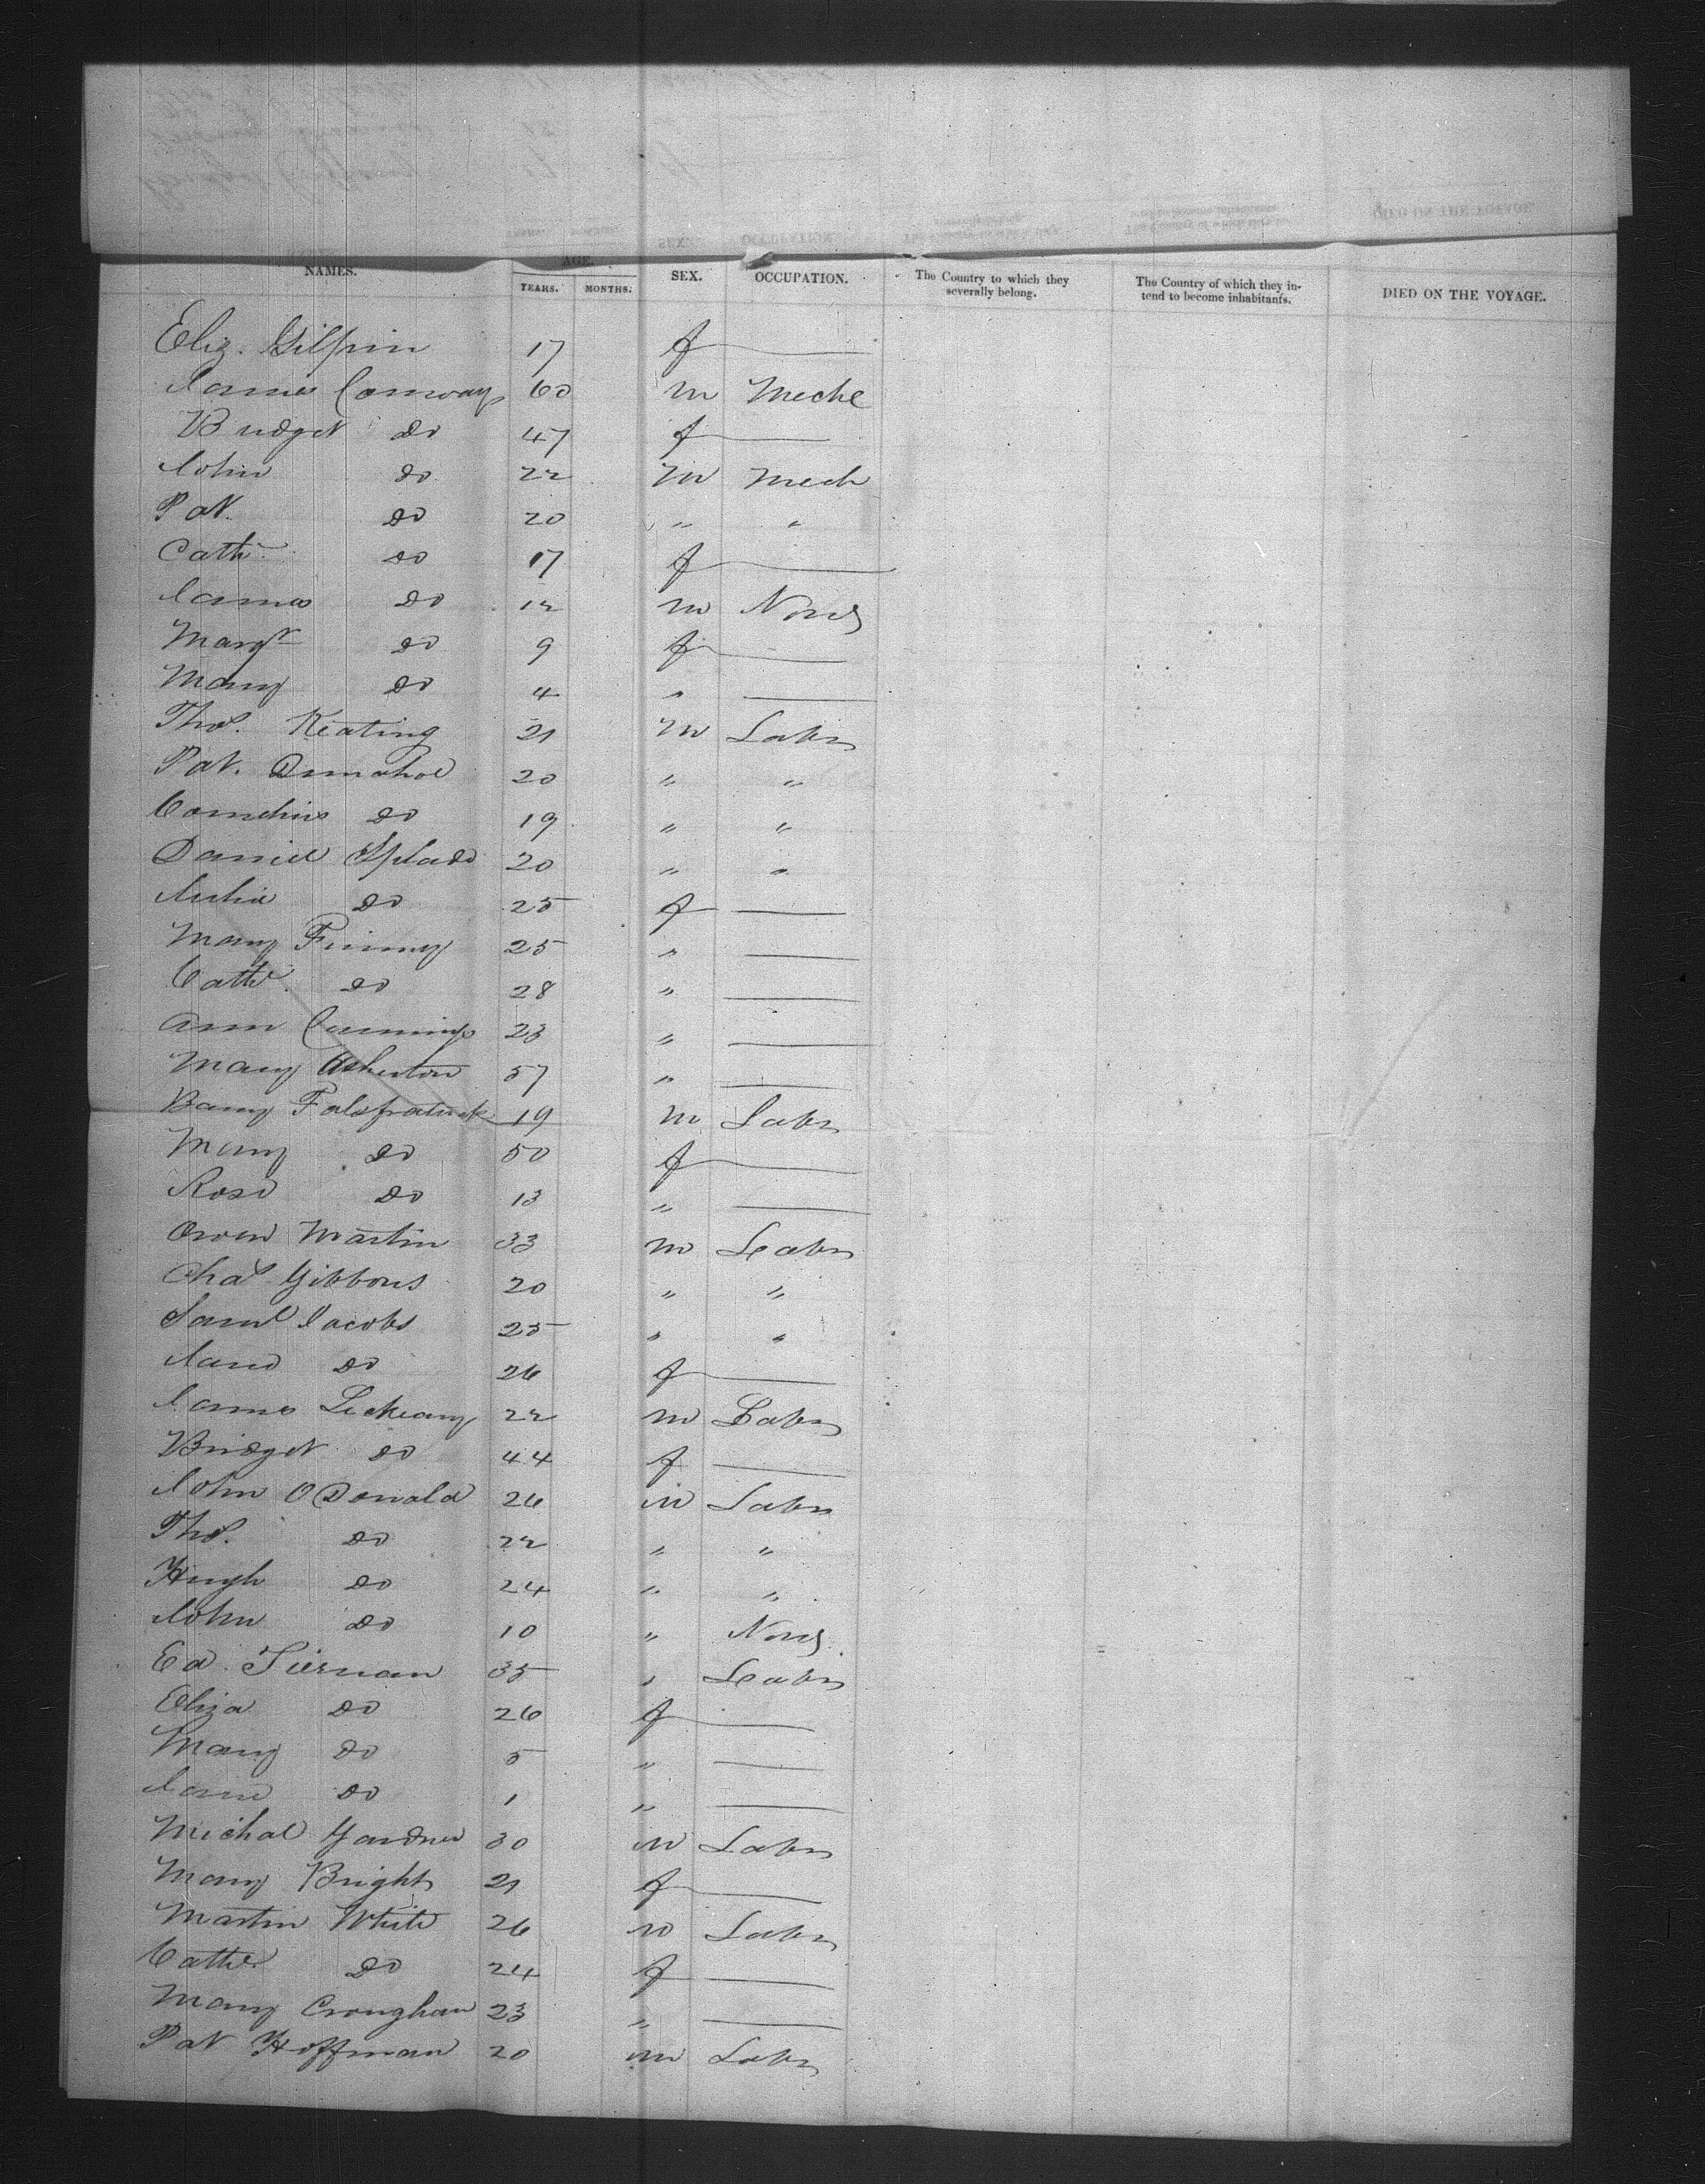 NAMES. AGE. YEARS. MONTHS. SEX. OCCUPATION. The Country to which they severally belong. The Country of which they intend to become inhabitants. DIED ON THE VOYAGE.
Eliz. Gilpin 17 f
James Conway 60 m Mech
Bridget Do 47 f
John Do 22 m Mech
Pat. Do 20 " "
Cath Do 17 f
James Do 12 m None
Margt Do 9 f
Mary Do 4 "
Thos. Keating 21 m Labr
Pat. Donahoe 20 " "
Cornelius Do 19 " "
Daniel 20 " "
Julia Do 25 f
Mary Finney 25 "
Cathe. Do 28 "
Ann Cummings 23 "
Mary Asherton 57 "
Barny Falspatrick 19 m Labr
Mary Do 50 f
Rose Do 13 "
Owen Martin 33 m Labr
Chas Gibbons 20 " "
Saml Jacobs 25 " "
Jane Do 26 f
James 22 m Labr
Bridget Do 44 f
John O Donald 26 m Labr
Thos. Do 22 " "
Hugh Do 24 " "
John Do 10 " None
Ed. Tiernan 35 " Labr
Eliza Do 26 f
Mary Do 5 "
Jane Do 1 "
Michal Gardner 30 m Labr
Mary Bright 21 f
Martin White 26 m Labr
Cathe. Do 24 f
Mary Croughan 23 "
Pat Hoffman 20 m Labr